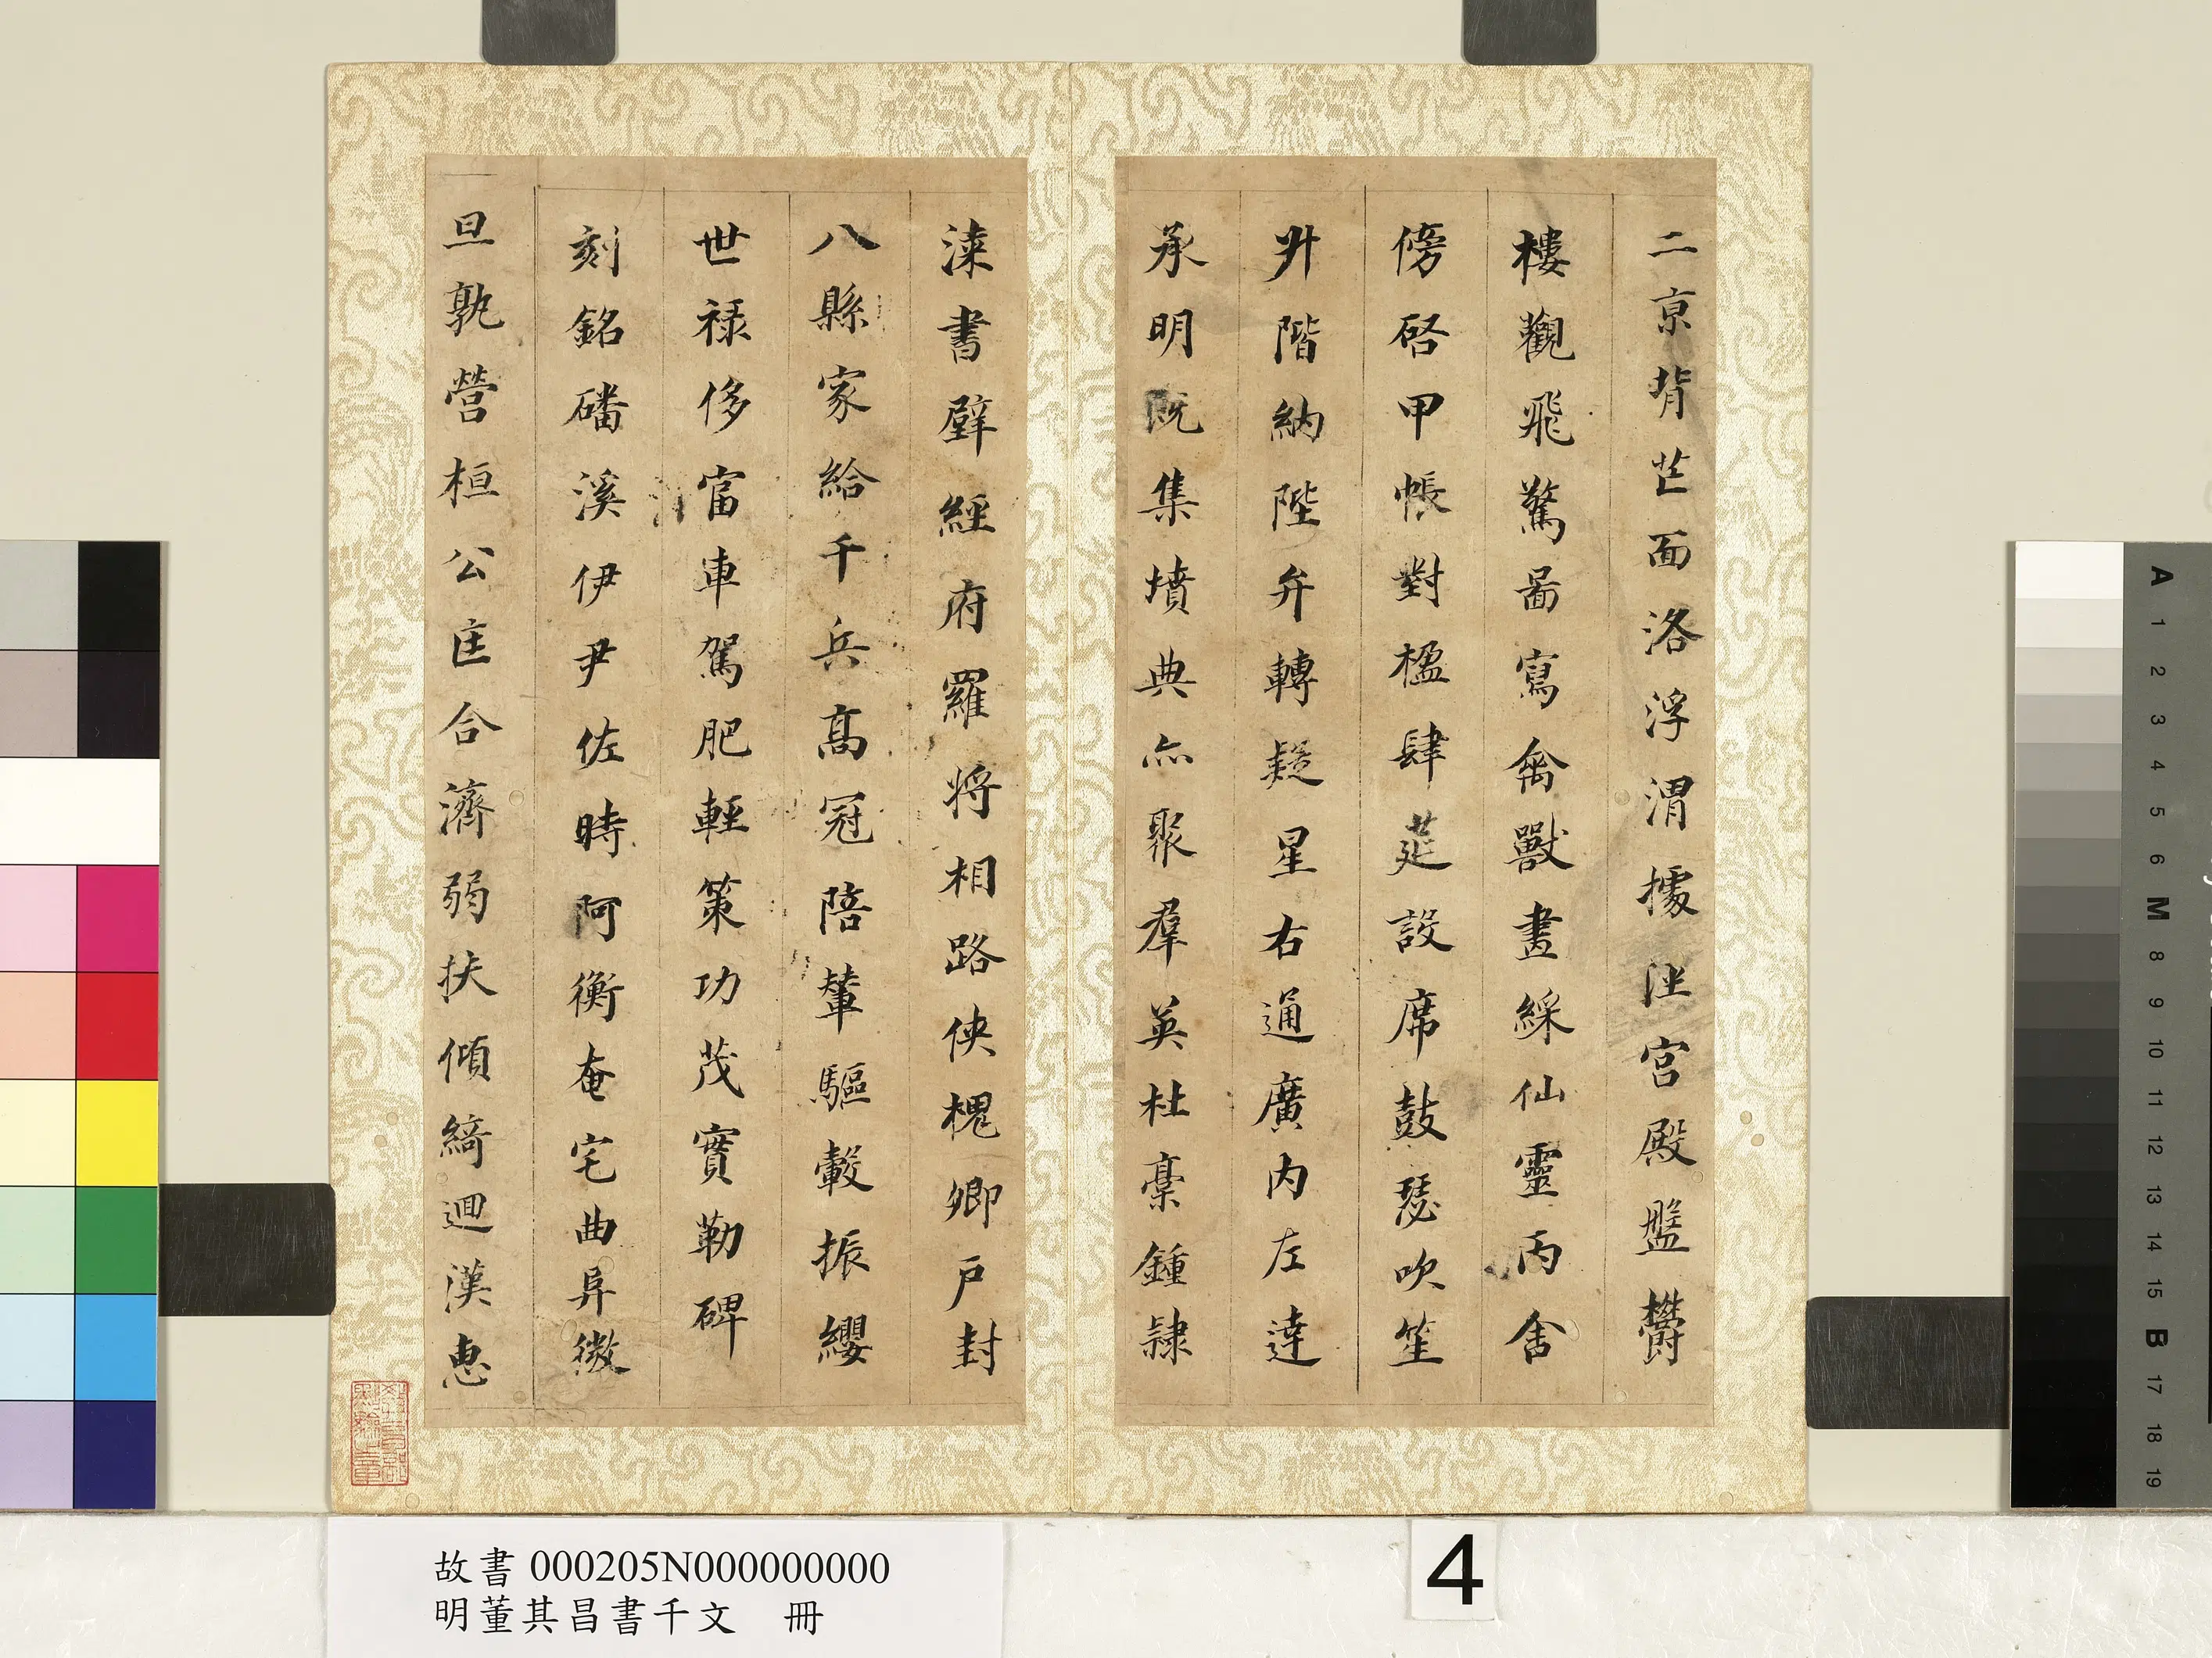 二京背芒面洛浮渭據涇宮殿盤欝
樓觀飛驚啚寫禽獸畫綵仙靈丙舍
傍啓甲帳對楹肆莚設席鼓瑟吹笙
升階納陛弁轉疑星右通廣内左達
承明既集墳典亦聚羣英杜稾鍾隷
漆書壁經府羅將相路俠槐卿戶封
八縣家給千兵高冠陪輦驅轂振纓
世祿侈富車駕肥輕策功茂實勒碑
刻銘磻溪伊尹佐時阿衡奄宅曲阜微
旦孰營桓公匡合濟弱扶傾綺迴漢惠
故書 000205N000000000
明董其昌書千文 冊
4
A
1
2
3
4
5
6
M
8
9
10
11
12
13
14
15
B
17
18
19